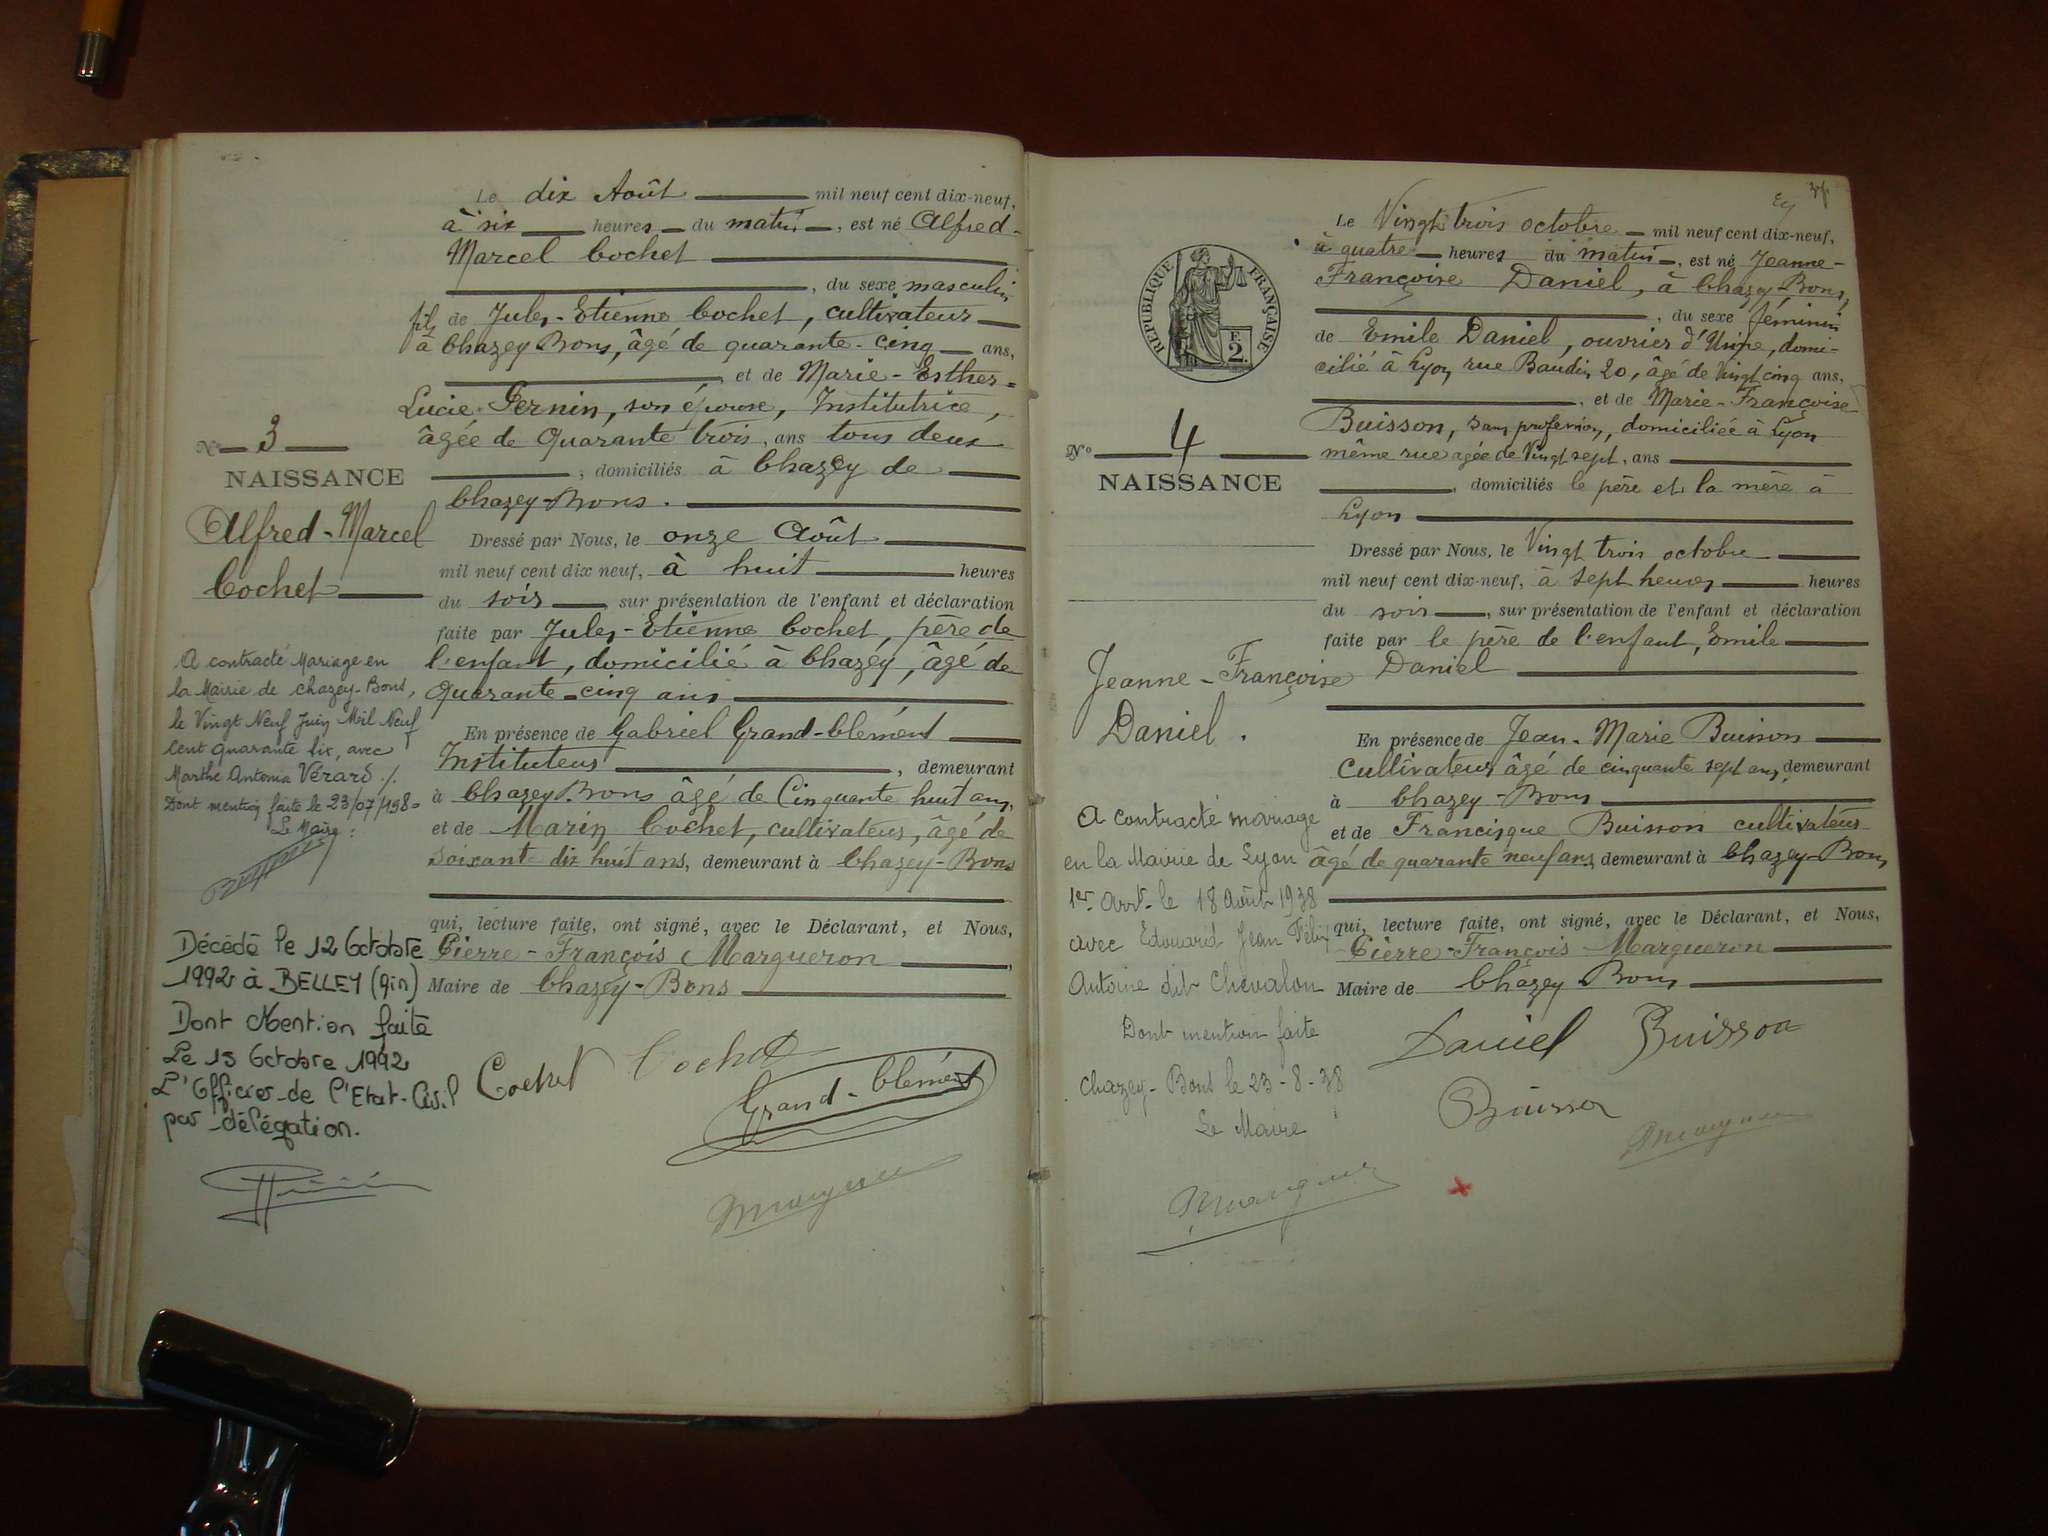 Le dix Août mil neuf cent dix-neuf,
à six heures du matin, est né Alfred-
Marcel Cochet
, du sexe masculin
fils de Jules-Etienne Cochet, cultivateur
à Chazey Bons, âgé de quarante-cinq ans,
et de Marie-Esther-
Lucie Pernin, son épouse, Institutrice,
âgée de Quarante trois, ans tous deux
, domiciliés à Chazey de
Chazey-Bons.
Dressé par Nous, le onze Août
mil neuf cent dix neuf, à huit heures
du soir, sur présentation de l'enfant et déclaration
faite par Jules-Etienne Cochet, père de
l'enfant, domicilié à Chazey, âgé de
Quarante-cinq ans
En présence de Gabriel Grand-Clément
Instituteur, demeurant
à Chazey Bons âgé de Cinquante huit ans,
et de Marin Cochet, cultivateur, âgé de
soixant dix huit ans, demeurant à Chazey-Bons
qui, lecture faite, ont signé, avec le Déclarant, et Nous,
Pierre-François Margueron,
Maire de Chazey-Bons
Cochet Cochet
Grand-Clément
N° 3
NAISSANCE
Alfred-Marcel
Cochet
A contracté Mariage en
la Mairie de Chazey-Bons,
le Vingt Neuf Juin Mil Neuf
Cent quarante six, avec
Marthe Antonia Vérard ./.
Dont mention faite le 23/07/198
Le Maire :
Décédé le 12 Octobre
1992 à BELLEY (Ain)
Dont Mention faite
Le 15 Octobre 1992
L'Officier de l'Etat-Civil
par délégation.
Le Vingt trois octobre mil neuf cent dix-neuf,
à quatre heures du matin, est né Jeanne-
Françoise Daniel, à Chazey-Bons,
, du sexe féminin
de Emile Daniel, ouvrier d'Usine, domi-
cilié à Lyon rue Baudin 20, âgé de Vingt cinq ans,
, et de Marie-Françoise
Buisson, sans profession, domiciliée à Lyon
même rue agée de Vingt sept, ans
, domiciliés le père et la mère à
Lyon
Dressé par Nous, le Vingt trois octobre
mil neuf cent dix-neuf, à sept heures heures
du soir, sur présentation de l'enfant et déclaration
faite par le père de l'enfant, Emile
Daniel
En présence de Jean-Marie Buisson
Cultivateur âgé de cinquante sept ans, demeurant
à Chazey-Bons
et de Francisque Buisson cultivateur
âgé de quarante neuf ans, demeurant à Chazey-Bons
qui, lecture faite, ont signé, avec le Déclarant, et Nous,
Pierre-François Margueron
Maire de Chazey Bons
Daniel Buisson
Buisson
RÉPUBLIQUE FRANÇAISE
F.
2.
N° 4
NAISSANCE
Jeanne-Françoise
Daniel.
A contracté mariage
en la Mairie de Lyon
1er arrt le 18 août 1938
avec Edouard Jean Félix
Antoine dit Chevalon
Dont mention faite
Chazey-Bons le 23-8-38
Le Maire